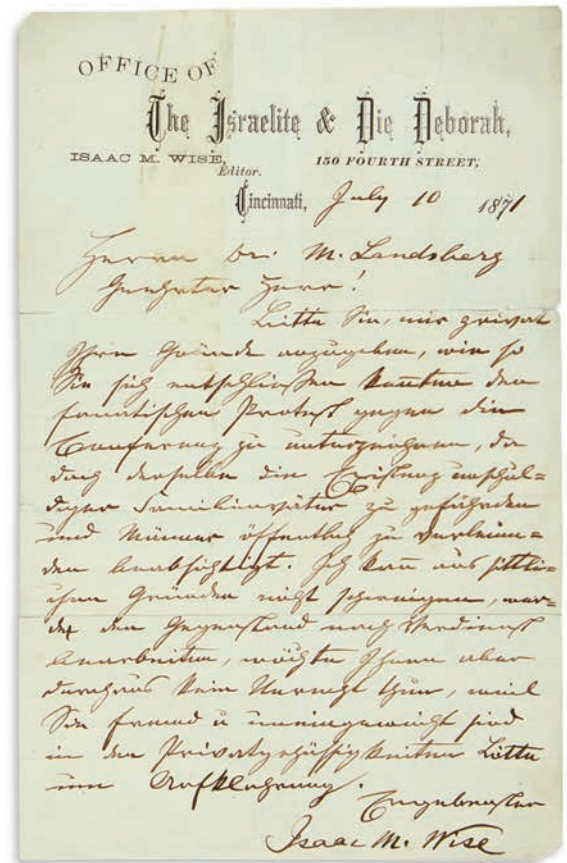 OFFICE OF
The Israelite & Die Deborah,
ISAAC M. WISE, 150 FOURTH STREET,
Editor.
Cincinnati, July 10 1871
Herrn Dr. M. Landsberg
Geehrter Herr!
Bitte Sie, mir privat
Ihre Gründe anzugeben, wie so
Sie sich entschließen konnten den
fanatischen Protest gegen die
Conferenz zu unterzeichnen, da
doch derselbe die Existenz unschul=
diger Familienväter zu gefährden
und Männer öffentlich zu verleum=
den beabsichtigt. Ich kann aus sittli=
chen Gründen nicht schweigen, wer=
de den Gegenstand nach Verdienst
bearbeiten, möchte Ihnen aber
durchaus kein Unrecht thun, weil
Sie fremd u uneingeweiht sind
in den Privatgehässigkeiten Bitte
um Aufklährung.
Ergebenster
Isaac M. Wise